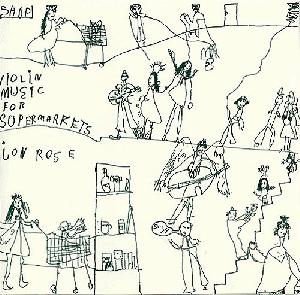 VIOLIN
MUSIC
FOR
SUPERMARKETS
JON ROSE